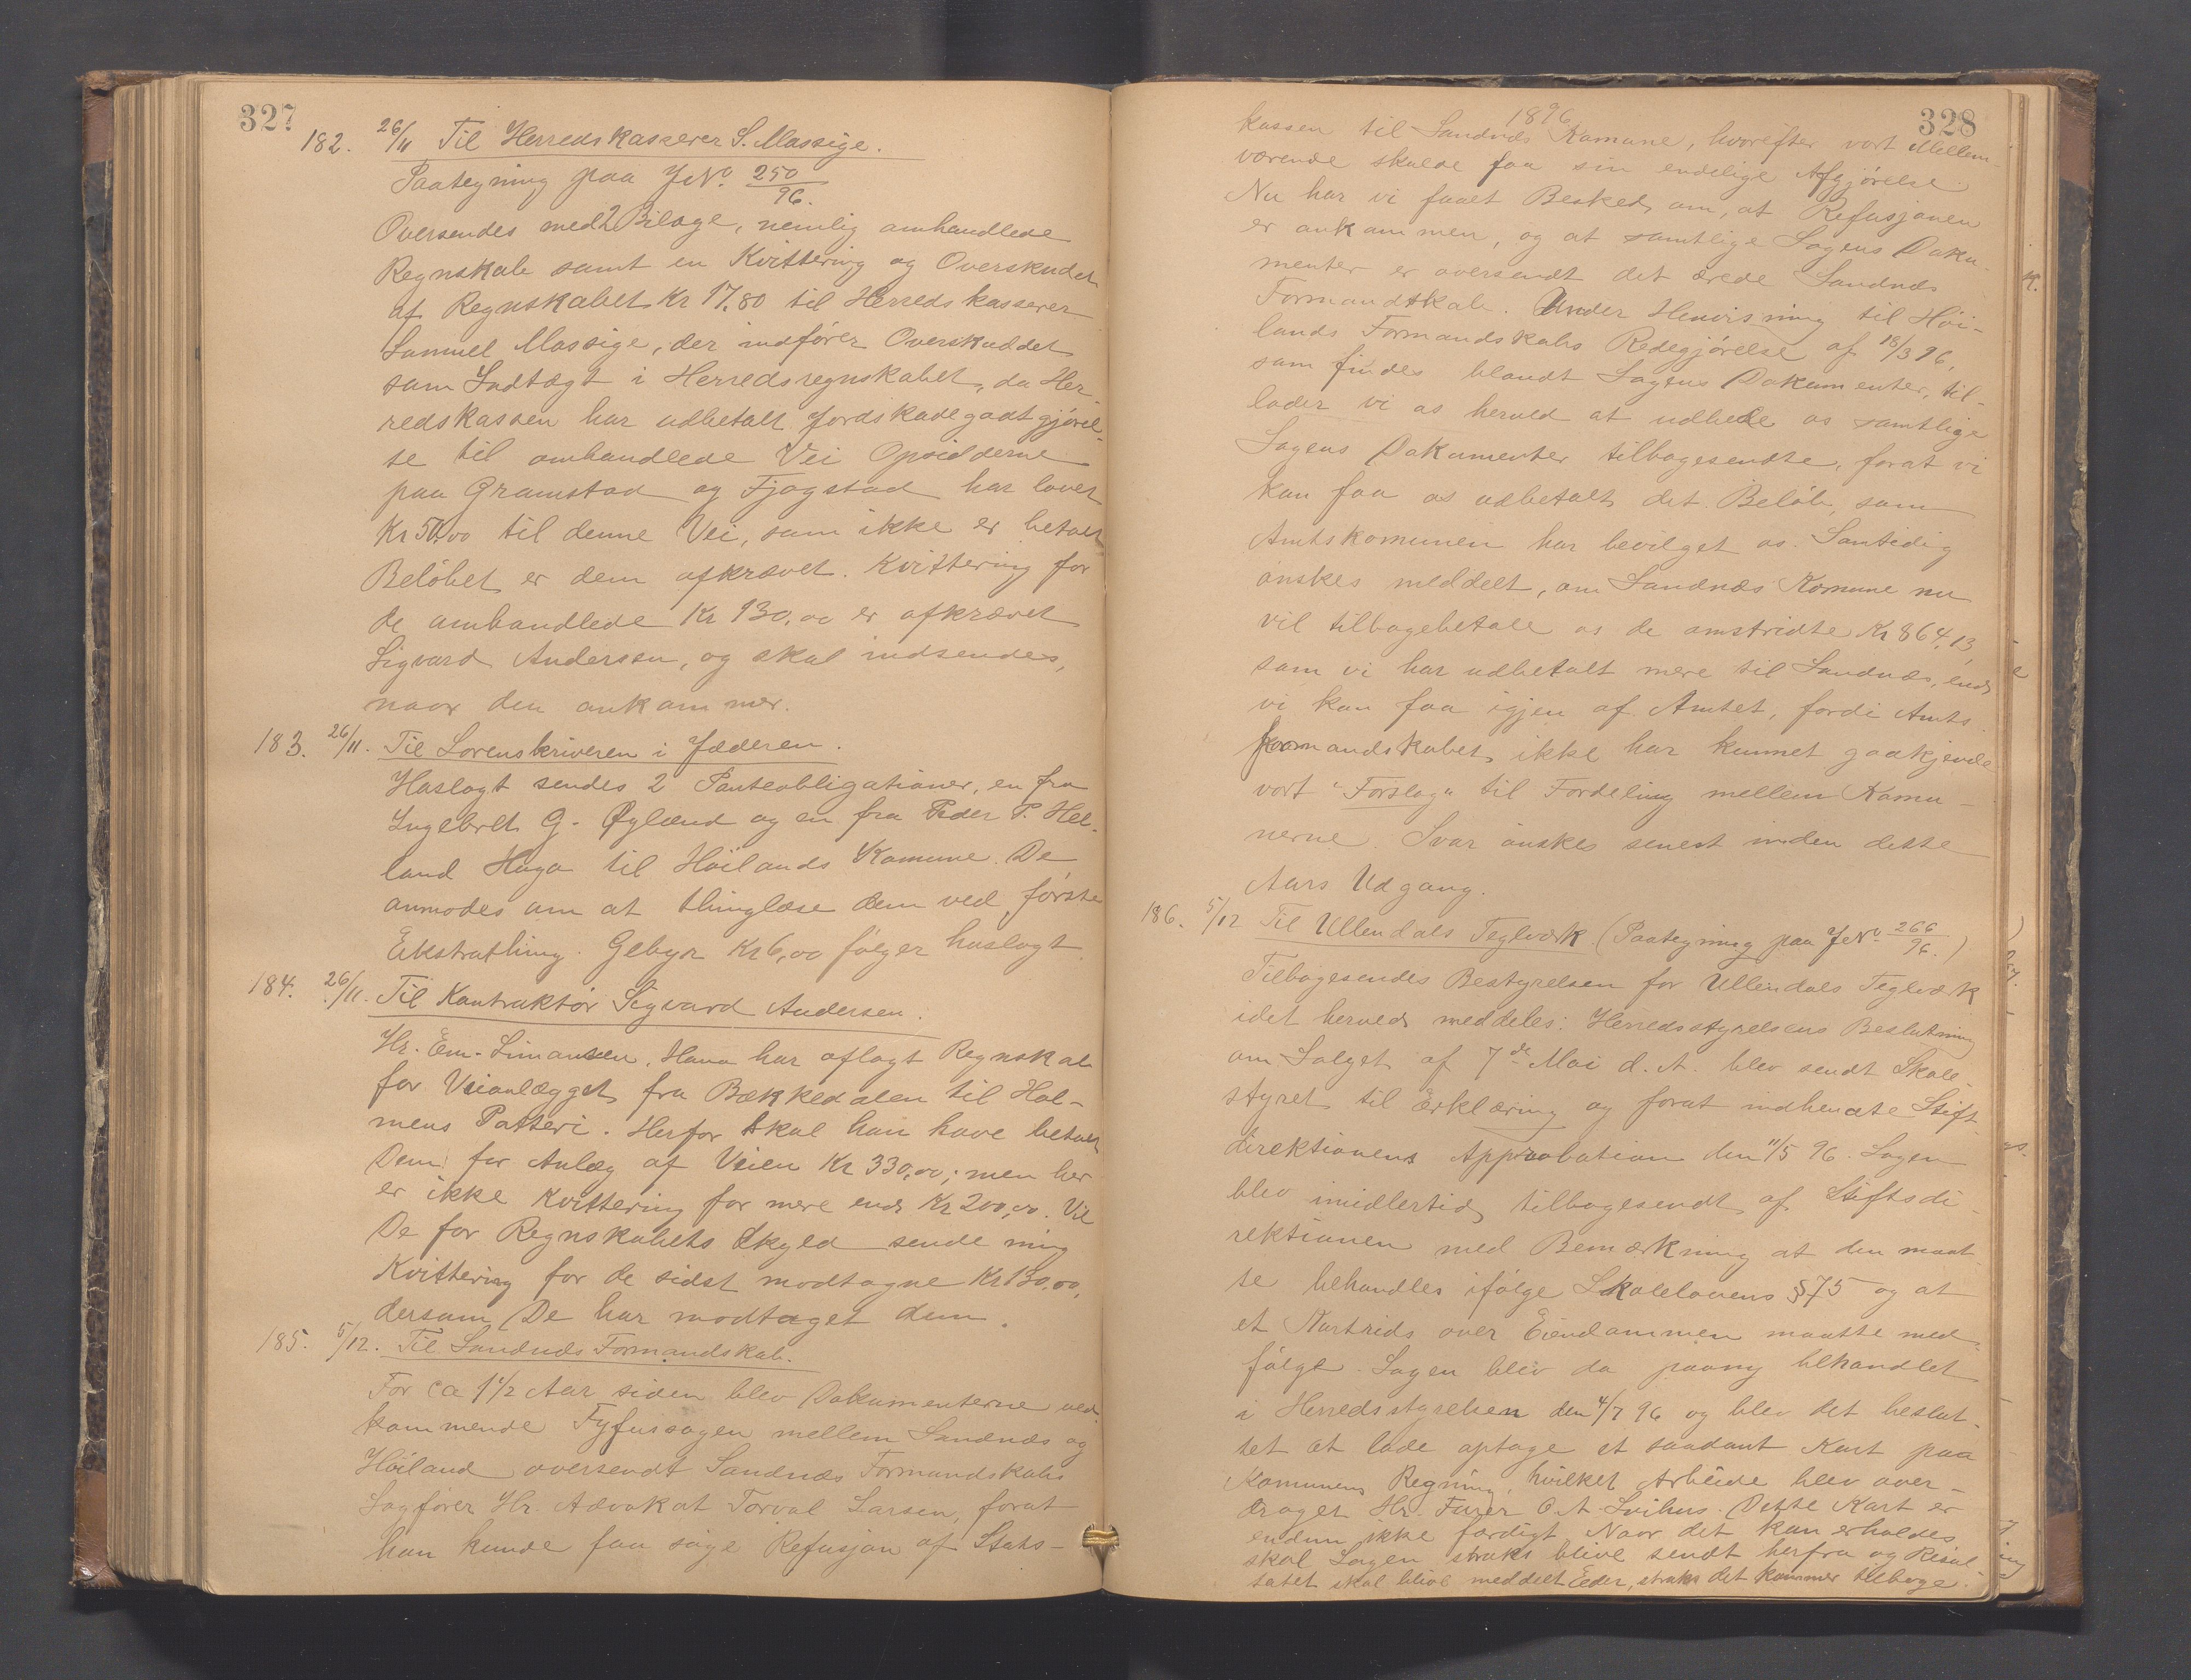 327
182. 26/11 Til Herredskasserer S. Massige.
Paategning paa J.No. 250/96.
Oversendes med 2 Bilage, nemlig omhandlede
Regnskab samt en Kvittering og Overskudet
af Regnskabet Kr 17,80 til Herredskasserer
Samuel Massige, der indfører Overskuddet
som Indtægt i Herredsregnskabet, da Her-
redskassen har udbetalt Jordskadegodtgjørel-
se til omhandlede Vei Opsidderne
paa Gramstad og Fjogstad har lovet
Kr 50,00 til denne Vei, som ikke er betalt
Beløbet er dem afkrævet. Kvittering for
de omhandlede Kr 130,00 er afkrævet
Sigvard Andersen, og skal indsendes,
naar den ankommer.
183. 26/11. Til Sorenskriveren i Jæderen.
Hoslagt sendes 2 Panteobligationer, en fra
Ingebret G. Øglænd og en fra Peder P. Hel-
land Hago til Høilands Komune. De
anmodes om at thinglæse dem ved første
Ekstrathing. Gebyr Kr 6,00 følger hoslagt.
184. 26/11. Til Kontraktør Sigvard Andersen.
Hr. Em. Simonsen, Hana har aflagt Regnskab
for Veianlægget fra Bækkedalen til Hol-
mens Patteri. Herfor skal han have betalt
Dem for Anlæg af Veien Kr 330,00; men her
er ikke Kvittering for mere end Kr 200,00. Vil
De for Regnskabets Skyld sende mig
Kvittering for de sidst modtagne Kr 130,00,
dersom De har modtaget dem.
185. 5/12. Til Sandnæs Formandskab.
For ca 1 1/2 Aar siden blev Dokumenterne ved-
kommende Tyfussagen mellem Sandnæs og
Høiland oversendt Sandnæs Formandskabs
Sagfører Hr. Advokat Torval Larsen, forat
han kunde faa søge Refusjon af Stats-
1896
328
kassen til Sandnæs Komune, hvorefter vort Mellem-
værende skulde faa sin endelige Afgjørelse.
Nu har vi faaet Besked om, at Refusjonen
er ankommen, og at samtlige Sagens Doku-
menter er oversendt det ærede Sandnæs
Formandskab. Under Henvisning til Høi-
lands Formandskabs Redegjørelse af 18/3 96,
som findes blandt Sagens Dokumenter, til-
lader vi os herved at udbede os samtlige
Sagens Dokumenter tilbagesendte, forat vi
kan faa os udbetalt det Beløb, som
Amtskomunen har bevilget os. Samtidig
ønskes meddelt, om Sandnæs Komune nu
vil tilbagebetale os de omstridte Kr 864,13,
som vi har udbetalt mere til Sandnæs, end
vi kan faa igjen af Amtet, fordi Amts
formandskabet ikke har kunnet godkjende
vort "Forslag" til Fordeling mellem Komu-
nerne. Svar ønskes senest inden dette
Aars Udgang.
186. 5/12 Til Ullendals Teglværk. (Paategning paa J.No. 266/96.)
Tilbagesendes Bestyrelsen for Ullendals Teglværk
idet herved meddeles: Herredsstyrelsens Beslutning
om Salget af 7de Mai d. A. blev sendt Skole-
styret til Erklæring og forat indhente Stift-
direktionens Approbation den 11/5 96. Sagen
blev imidlertid tilbagesendt af Stiftsdi-
rektionen med Bemærkning at den maat-
te behandles ifølge Skolelovens §75 og at
et Kartrids over Eiendommen maatte med-
følge. Sagen blev da paany behandlet
i Herredsstyrelsen den 4/7 96 og blev det beslut-
tet at lade optage et saadant Kart paa
Komunens Regning, hvilket Arbeide blev over-
draget Hr. Furer O. A. Svihus. Dette Kart er
endnu ikke færdigt. Naar det kan erholdes,
skal Sagen straks blive sendt herfra og Resul-
tatet skal blive meddelt Eder, straks det kommer tilbage.